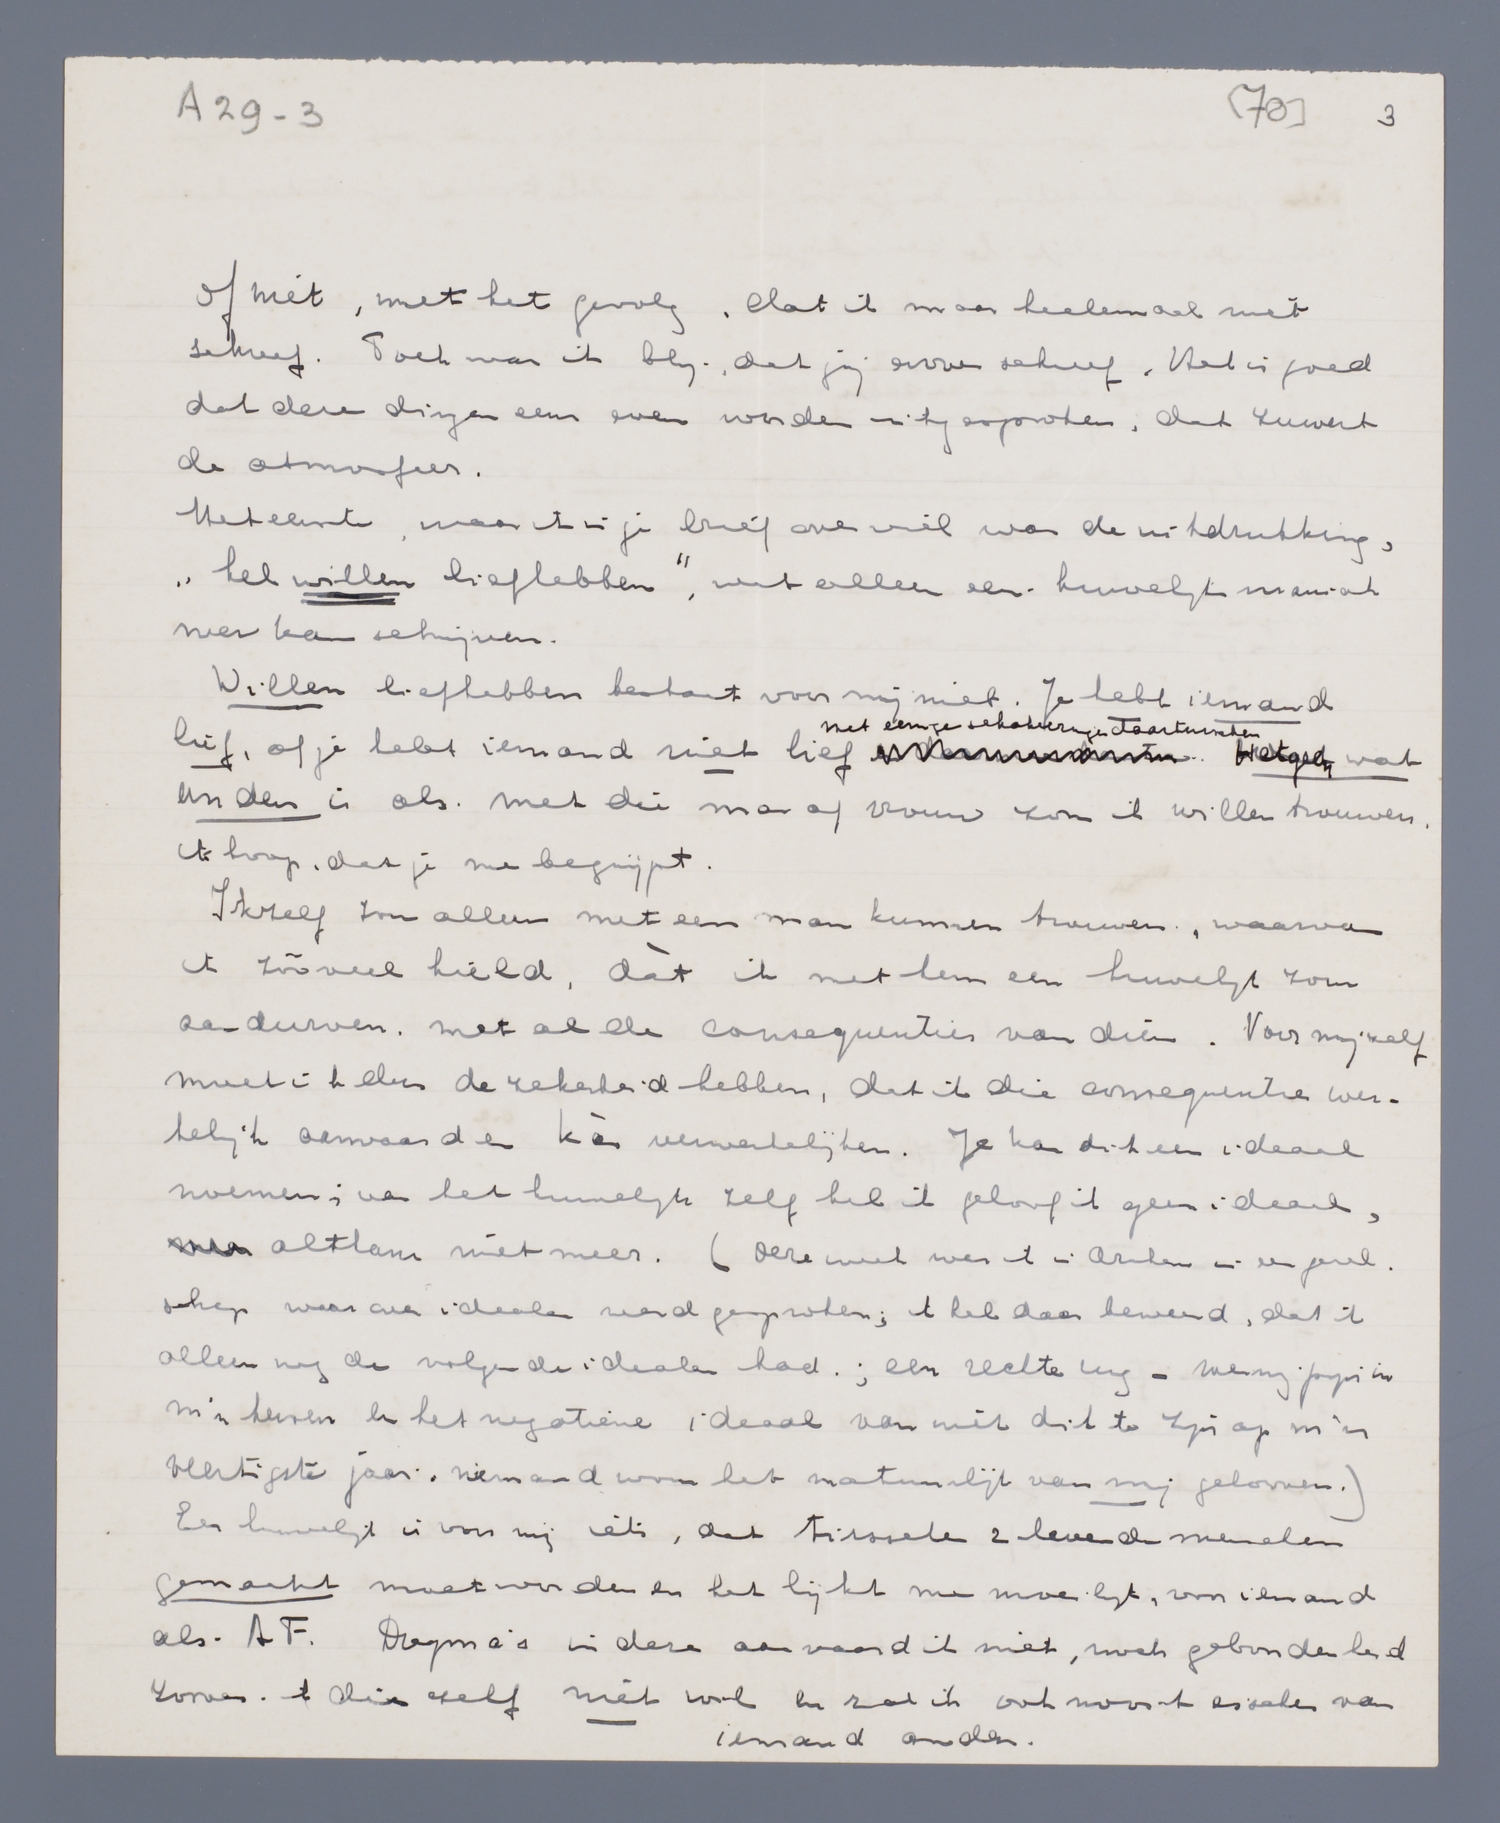 A 29 - 3 [70] 3
of niét, met het gevolg, dat ik maar heelemaal niet
schreef. Toch was ik bly, dat jij erover schreef. Het is goed
dat deze dingen eens even worden uitgesproken, dat zuivert
de atmosfeer.
Het eerste, waar ik in je brief over viel was de uitdrukking,
„het willen liefhebben", wat alleen een huwelyks maniak
neer kan schrijven.
Willen liefhebben bestaat voor mij niet. Je hebt iemand
lief, of je hebt iemand niet lief met eenige schakeeringen daartusschen. wat
anders is als: met die man of vrouw zou ik willen trouwen.
ik hoop, dat je me begrijpt.
Ikzelf zou alleen met een man kunnen trouwen, waarvan
ik zóóveel hield, dàt ik met hem een huwelyk zou
aandurven. met al de consequenties van dien. Voor mijzelf
moet ik dus de zekerheid hebben, dat ik die consequenties wer-
kelijk aanvaarden kàn verwerkelijken. Je kan dit een ideaal
noemen; van het huwelyk zelf heb ik geloof ik geen ideaal,
althans niet meer. (Deze week was ik in Arnhem in een gezel-
schap waar over idealen werd gesproken; ik heb daar beweerd, dat ik
alleen nog de volgende idealen had: een rechte rug - weinig in
m'n en het negatieve ideaal van niet dik te zijn op m'n
veertigste jaar. niemand wou het natuurlijk van mij gelooven.)
Een huwelyk is voor mij iets, dat tusschen 2 levende menschen
gemaakt moet worden en het lijkt me moeilijk, voor iemand
als A F. Dogma's in deze aanvaard ik niet, noch gebondenheid
ik die zelf niét wil en zal ik ook nooit eischen van
iemand anders.